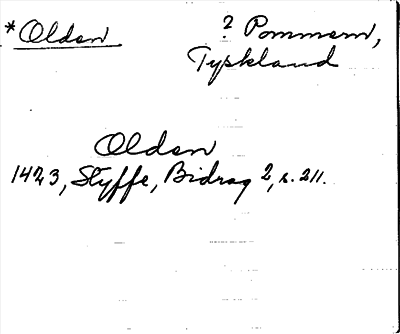 *Olden
? Pommern,
Tyskland
Olden
1423, Styffe, Bidrag 2, s. 211.